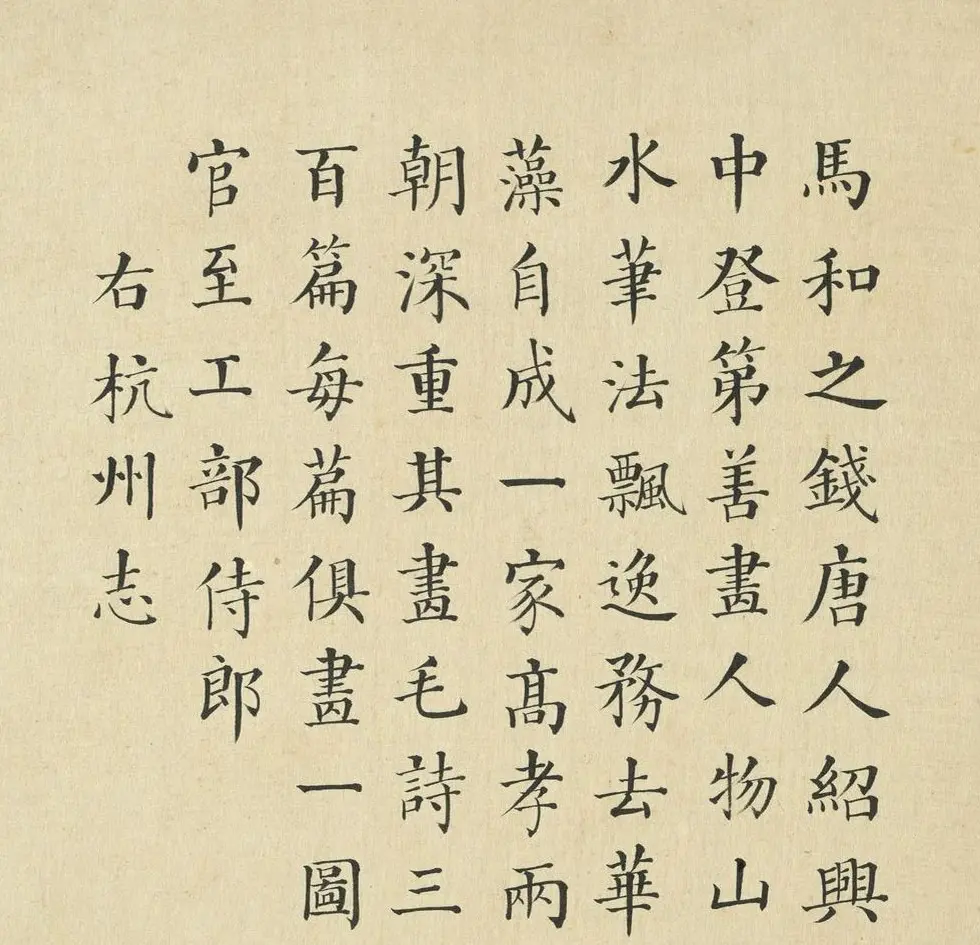 馬和之錢唐人紹興
中登第善畫人物山
水筆法飄逸務去華
藻自成一家高孝兩
朝深重其畫毛詩三
百篇每篇俱畫一圖
官至工部侍郎
右杭州志